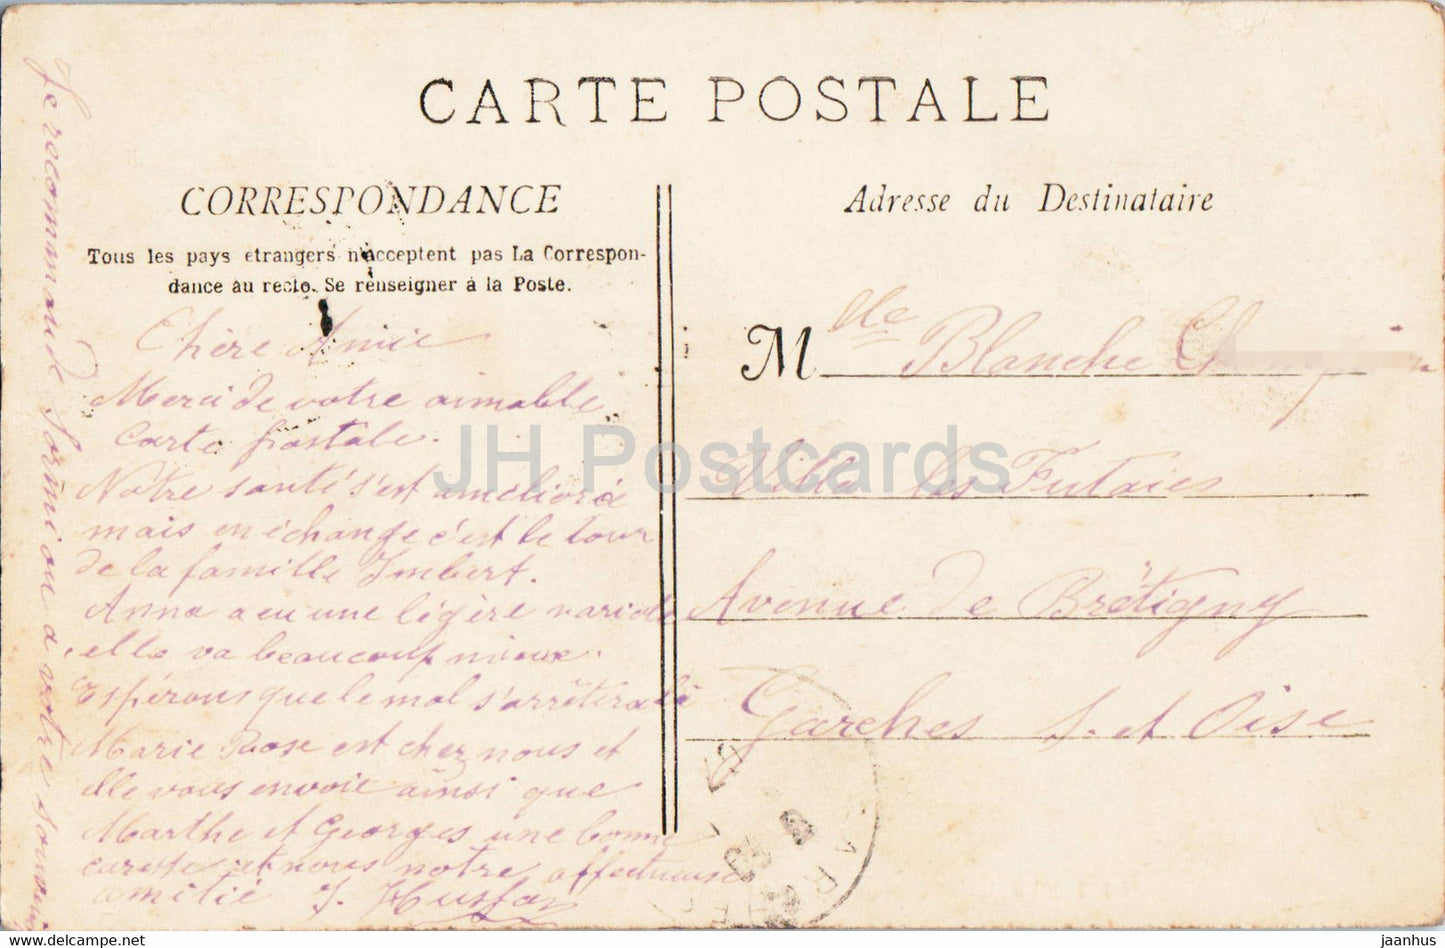 CARTE POSTALE
CORRESPONDANCE
Tous les pays etrangers n'acceptent pas La Correspon-
dance au recto. Se renseigner à la Poste.
Adresse du Destinataire
Chère Amie
Merci de votre aimable
Carte postale.
Notre santé s'est améliorée
mais en échange c'est le tour
de la famille Imbert.
Anna a eu une légère variole
elle va beaucoup mieux.
Espérons que le mal s'arrêtera là
Marie Rose est chez nous et
elle vous envoie ainsi que
Marthe et Georges une bonne
caresse et nous notre affectueuse
amitié J.
Je recommande a votre
M lle Blanche
Villa les Futaies
Avenue de Brétigny
Garches S. et Oise
JH Postcards
www.delcampe.net
jaanhus